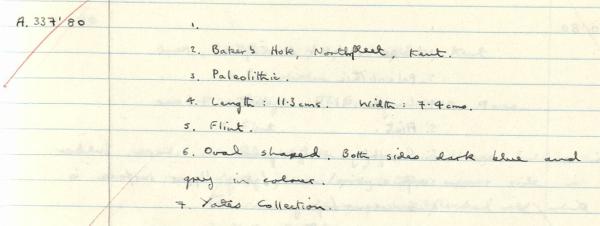 A. 337'80
1.
2. Baker's Hole, Northfleet, Kent.
3. Paleolithic.
4. Length : 11.3 cms. Width : 7.4 cms.
5. Flint.
6. Oval shaped. Both sides dark blue and
grey in colour.
7. Yates Collection.